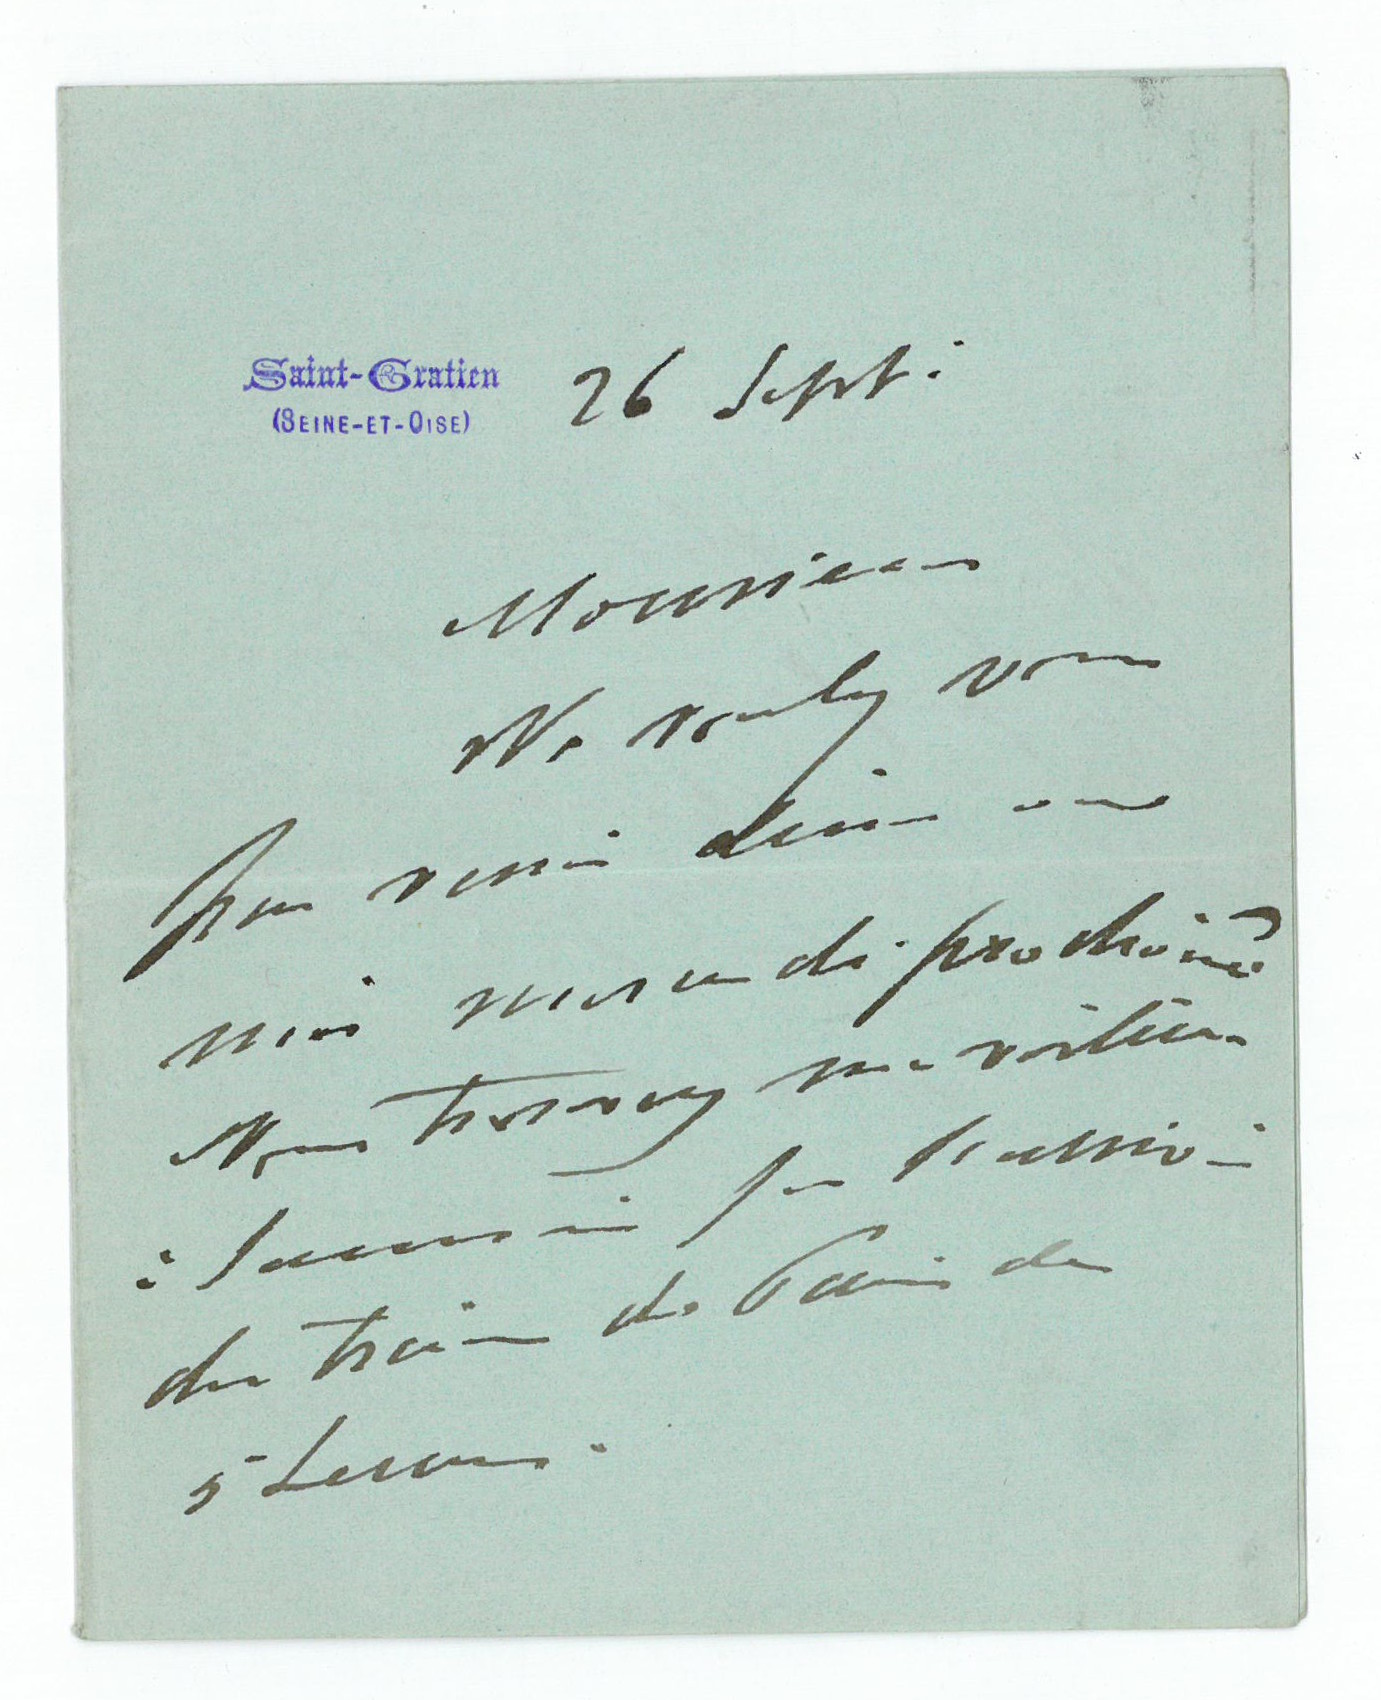 Saint-Gratien
(SEINE-ET-OISE)
26 Sept.
Monsieur
Ne voulez vous
pas venir diner avec
moi mercredi prochain
Vous trouverez ma voiture
à Sannois pour l'arrivée
du train de Paris de
5 heures.